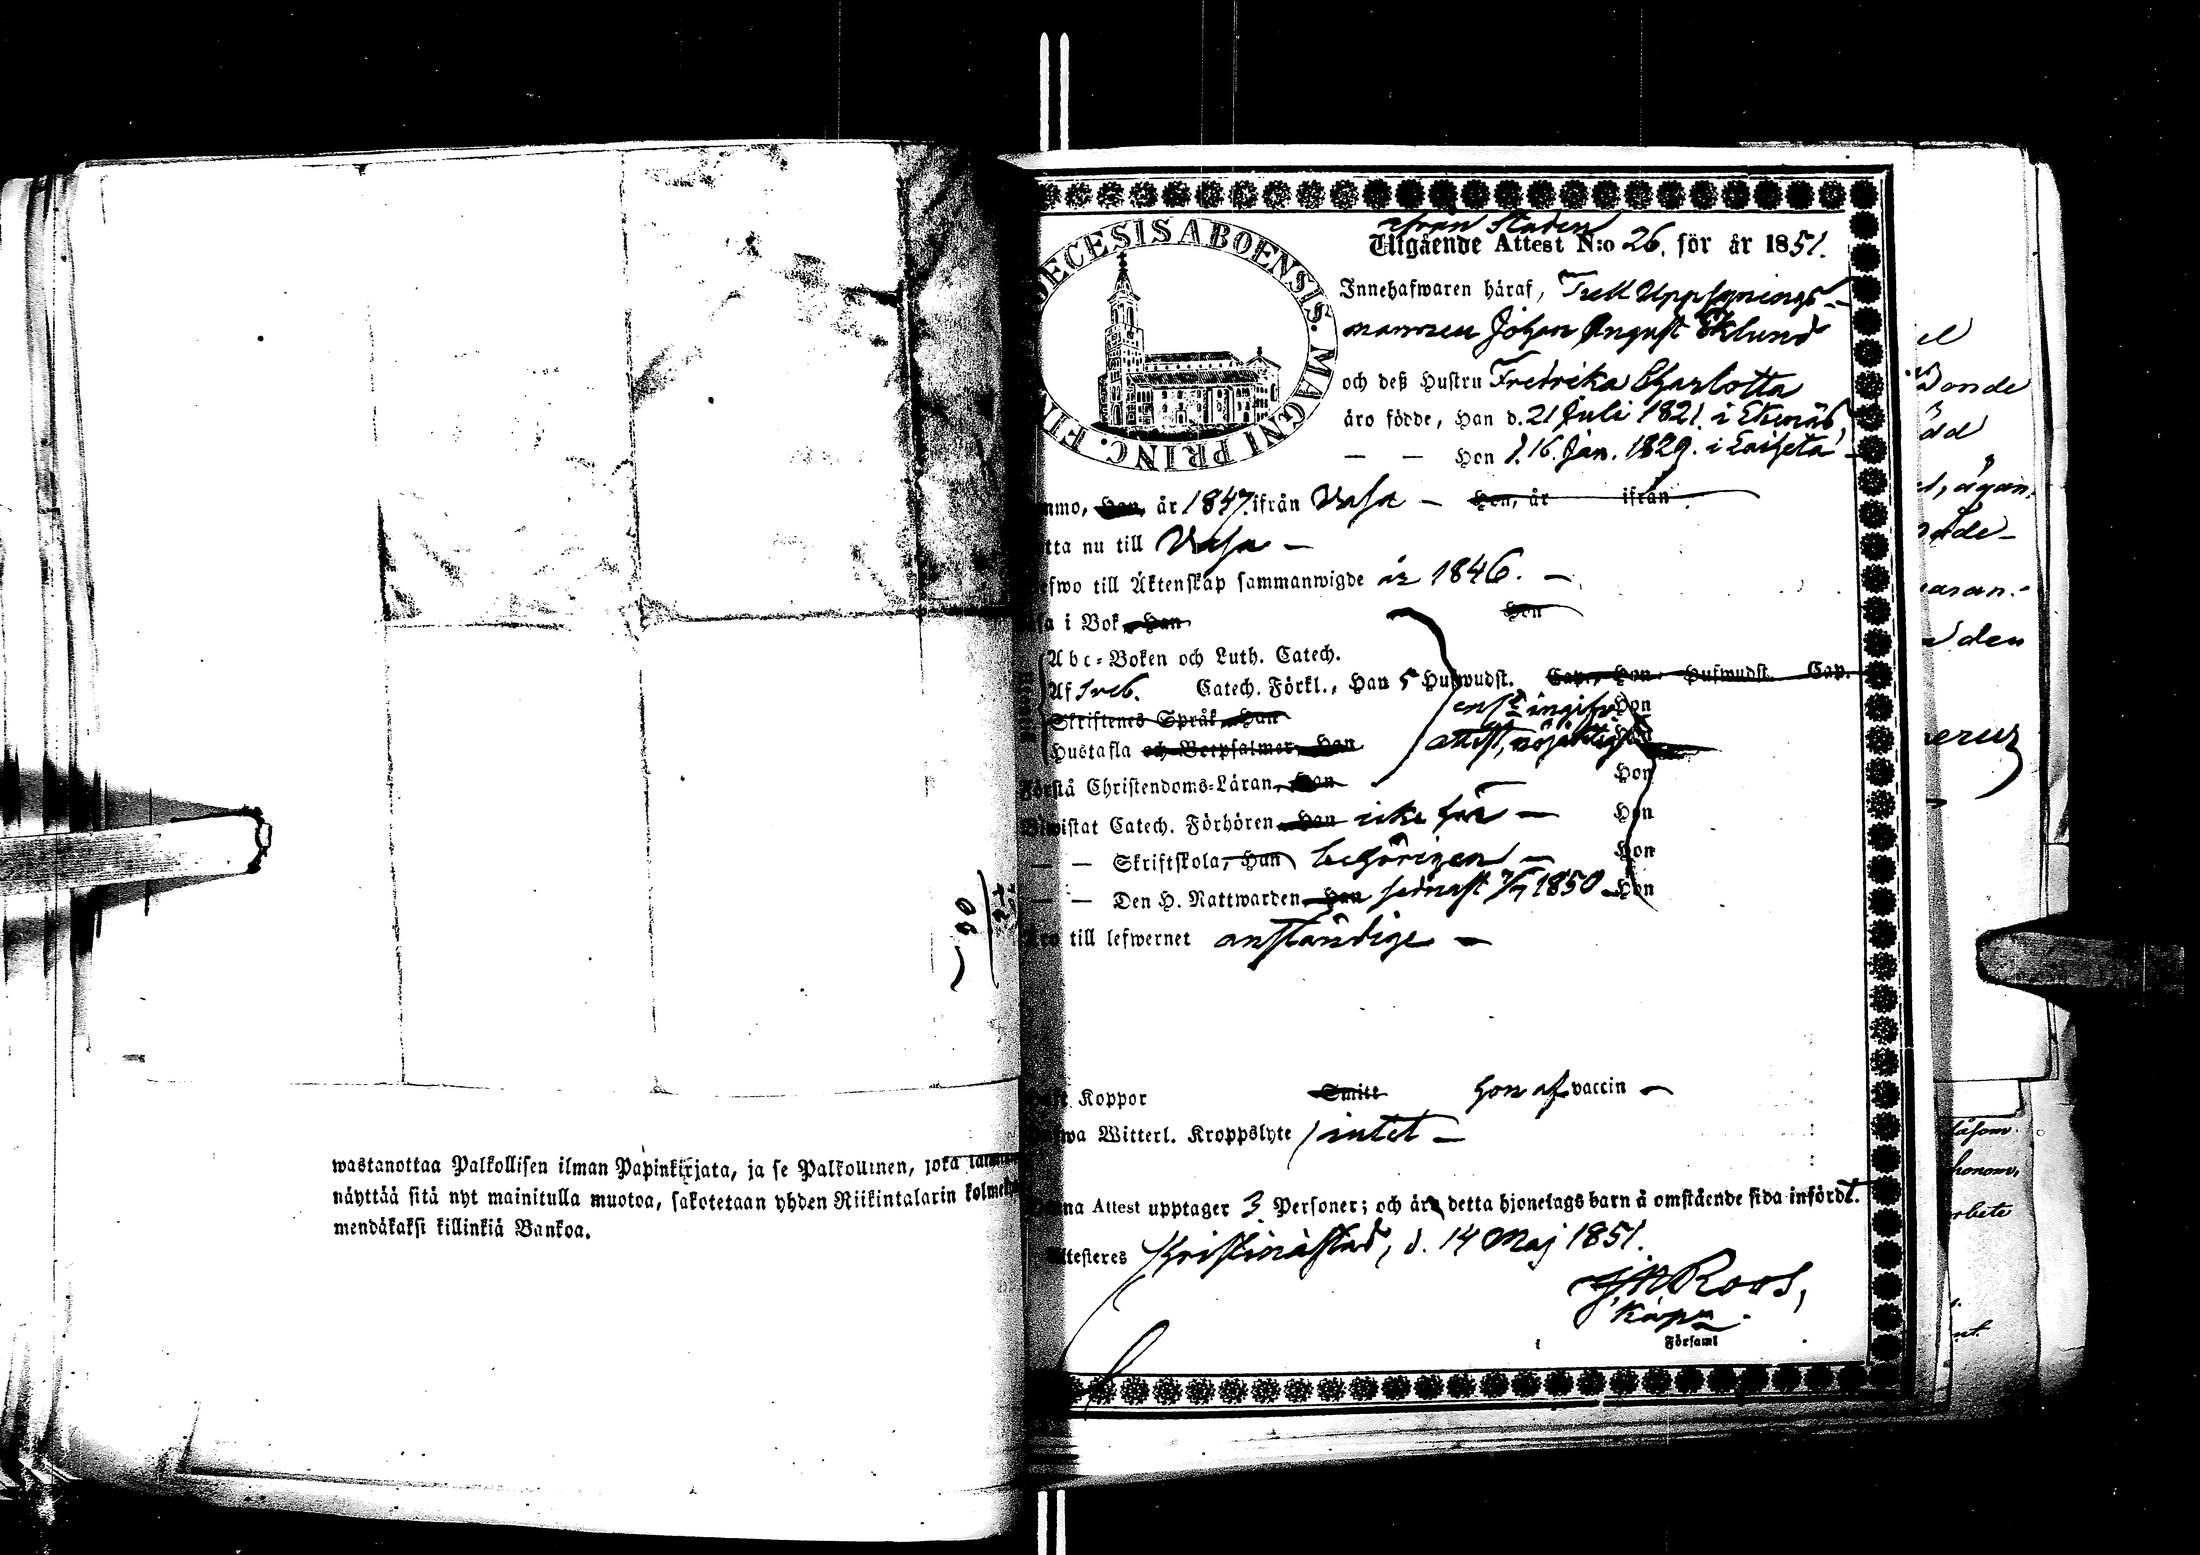 wastanottaa Palkollisen ilman Papinkirjata, ja se Palkollinen, joka
näyttää sitä nyt mainitulla muotoa, sakotetaan yhden Riikintalarin
mendäkaksi killinkiä Bankoa.
DIOECESIS ABOENSIS. MAGNI PRINC. FI
ifrån Staden
Utgående Attest N:o 26. för år 1851.
Innehafwaren häraf, Tull Uppsynings-
mannen Johan August Eklund
och deß Hustru Fredrika Charlotta
äro födde, Han d. 21 Juli 1821. i Ekenäs,
— — Hon d. 16. Jan. 1829. i Laihela
mmo, Han, år 1847. ifrån Wasa — Hon, år ifrån
tta nu till Wasa —
efwo till Äktenskap sammanwigde år 1846. —
sa i Bok, Han Hon
Abc-Boken och Luth. Catech.
Af Sveb. Catech. Förkl., Han 5 Hufwudst. Cap., Hon Hufwudst. Cap.
Skriftenes Språk, Han enl. ingifn Hon
Hustafla och Botpsalmer, Han attest, nöjaktigt
Förstå Christendoms-Läran, Han Hon
Biwistat Catech. Förhören, Han icke här — Hon
— — Skriftskola, Han behörigen — Hon
— — Den H. Nattwarden, Han sednast 7/7 1850 — Hon
Äro till lefwernet anständige —
Haft Koppor Smitt hon af vaccin —
Hafwa Witterl. Kroppslyte intet —
Denna Attest upptager 3 Personer; och äro detta hjonelags barn å omstående sida infördt.
Attesteres Kristinestad, d. 14 Maj 1851.
Roos,
Kapn.
Församl